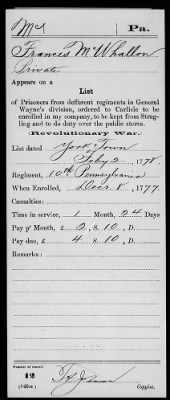 Mc | Pa.
Francis McWhallon
Private
Appears on a
List
of Prisoners from different regiments in General
Wayne's division, ordered to Carlisle to be
enrolled in my company, to be kept from Strag-
gling and to do duty over the public stores.
Revolutionary War.
List dated York Town
Feby 2, 1778.
Regiment, 10th Pennsylvania
When Enrolled, Decr 8, 1777.
Casualties:
Time in service, 1 Month, 24 Days
Pay pr Month, £ 2, S. 10, D.
Pay due, £ 4 S. 10, D.
Remarks:
Number of record:
12
Copyist.